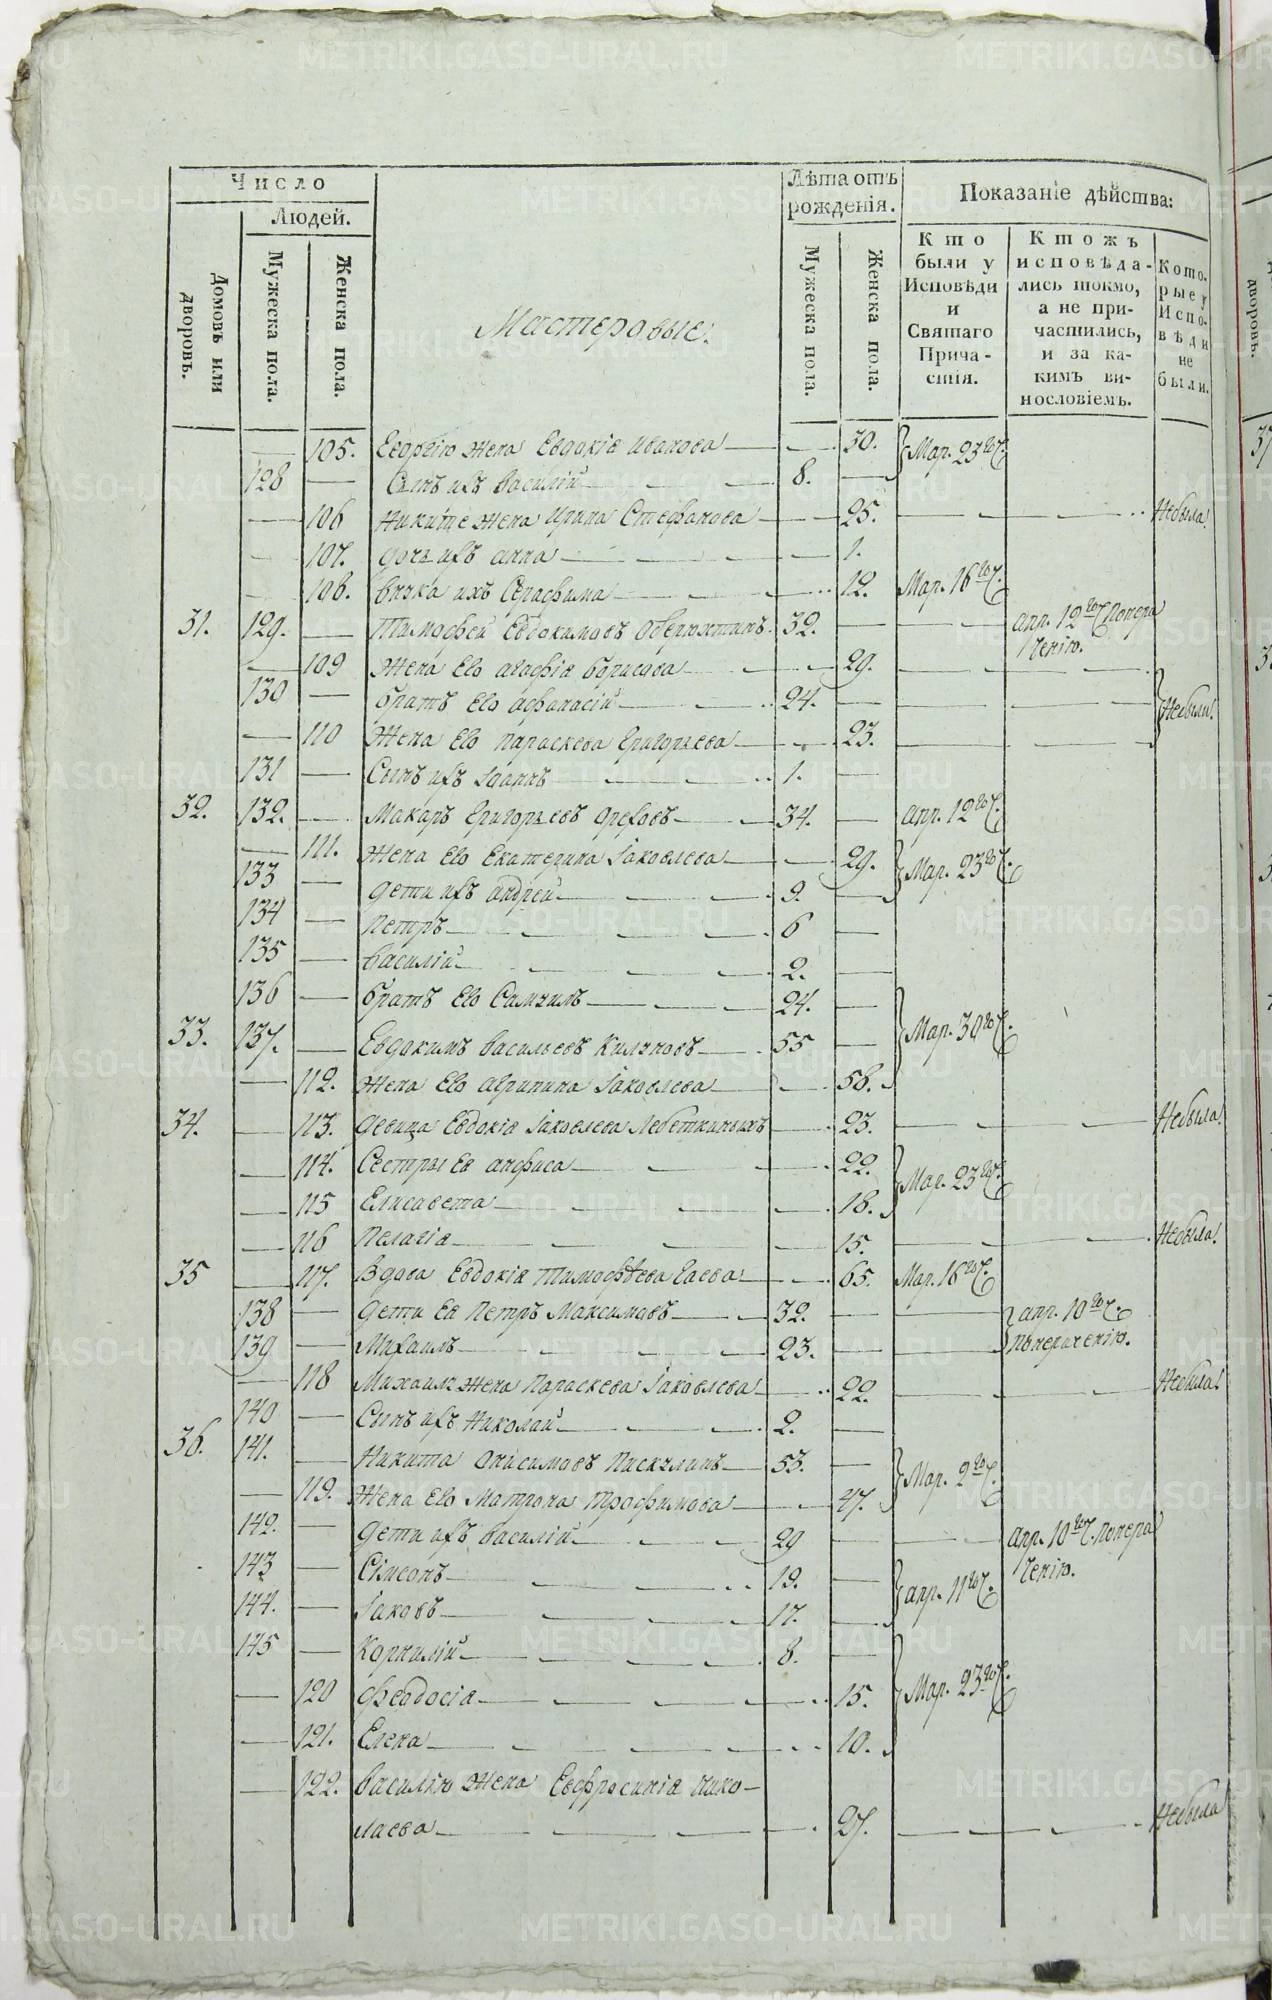 Число
Людей.
Домовъ или дворовъ.
Мужеска пола.
Женска пола.
Мастеровые:
Лѣта отъ рожденія.
Мужеска пола.
Женска пола.
Показаніе дѣйства:
Кто были у Исповѣди и Святаго Причастія.
Ктожъ исповѣдались токмо, а не причастились, и за какимъ винословіемъ.
Которые у Исповѣди не были.
105. Георгію жена Евдокія Иванова 30. Мар. 23го ч.
128 Сынъ ихъ Василій 8.
106 Никите жена Ирина Стефанова 25. Небыла.
107. Дочь ихъ Анна 1.
108. Внука ихъ Серафима 12. Мар. 16го ч.
31. 129. Тимофей Евдокимовъ Оберюхтинъ 32. Апр. 12го ч. Попера
чению.
109 Жена Его Агафія Борисова 29.
130 Братъ Его Афанасій 24. Небыли.
110 Жена Его Параскева Григорьева 23.
131 Сынъ ихъ Іоаннъ 1.
32. 132. Макаръ Григорьевъ Ореховъ 34. Апр. 12го ч.
111. Жена Его Екатерина Іаковлева 29. Мар. 23го ч.
133 Дети ихъ Андрей 9.
134 Петръ 6
135 Василій 2.
136 Братъ Его Самуилъ 24.
33. 137. Евдокимъ Васильевъ 55 Мар. 30го ч.
112. Жена Его Агрипина Іаковлева 56.
34. 113. Девица Евдокія Іаковлева Лебеткиныхъ 23. Небыла.
114. Сестры Ея Анфиса 22. Мар. 23го ч.
115 Елисавета 18.
116 Пелагія 15. Небыла.
35 117. Вдова Евдокія Тимофѣева Гаева 65. Мар. 16го ч.
138 Дети Ея Петръ Максимовъ 32. Апр. 10го ч.
139 Михаилъ 23. Поперачению.
118 Михаилу жена Параскева Іаковлева 22. Небыла.
140 Сынъ ихъ Николай 2.
36. 141. Никита Онисимовъ Паскулинъ 53. Мар. 2го ч.
119. Жена Его Матрона Трофимова 47.
142. Дети ихъ Василій 29 Апр. 10го ч. попера
чению.
143 Сімеонъ 19. Апр. 11го ч.
144. Іаковъ 17.
145 Корнилій 8.
120 Феодосія 15. Мар. 23го ч.
121. Елена 10.
122. Василію жена Евфросинія Нико-
лаева 27. Небыла